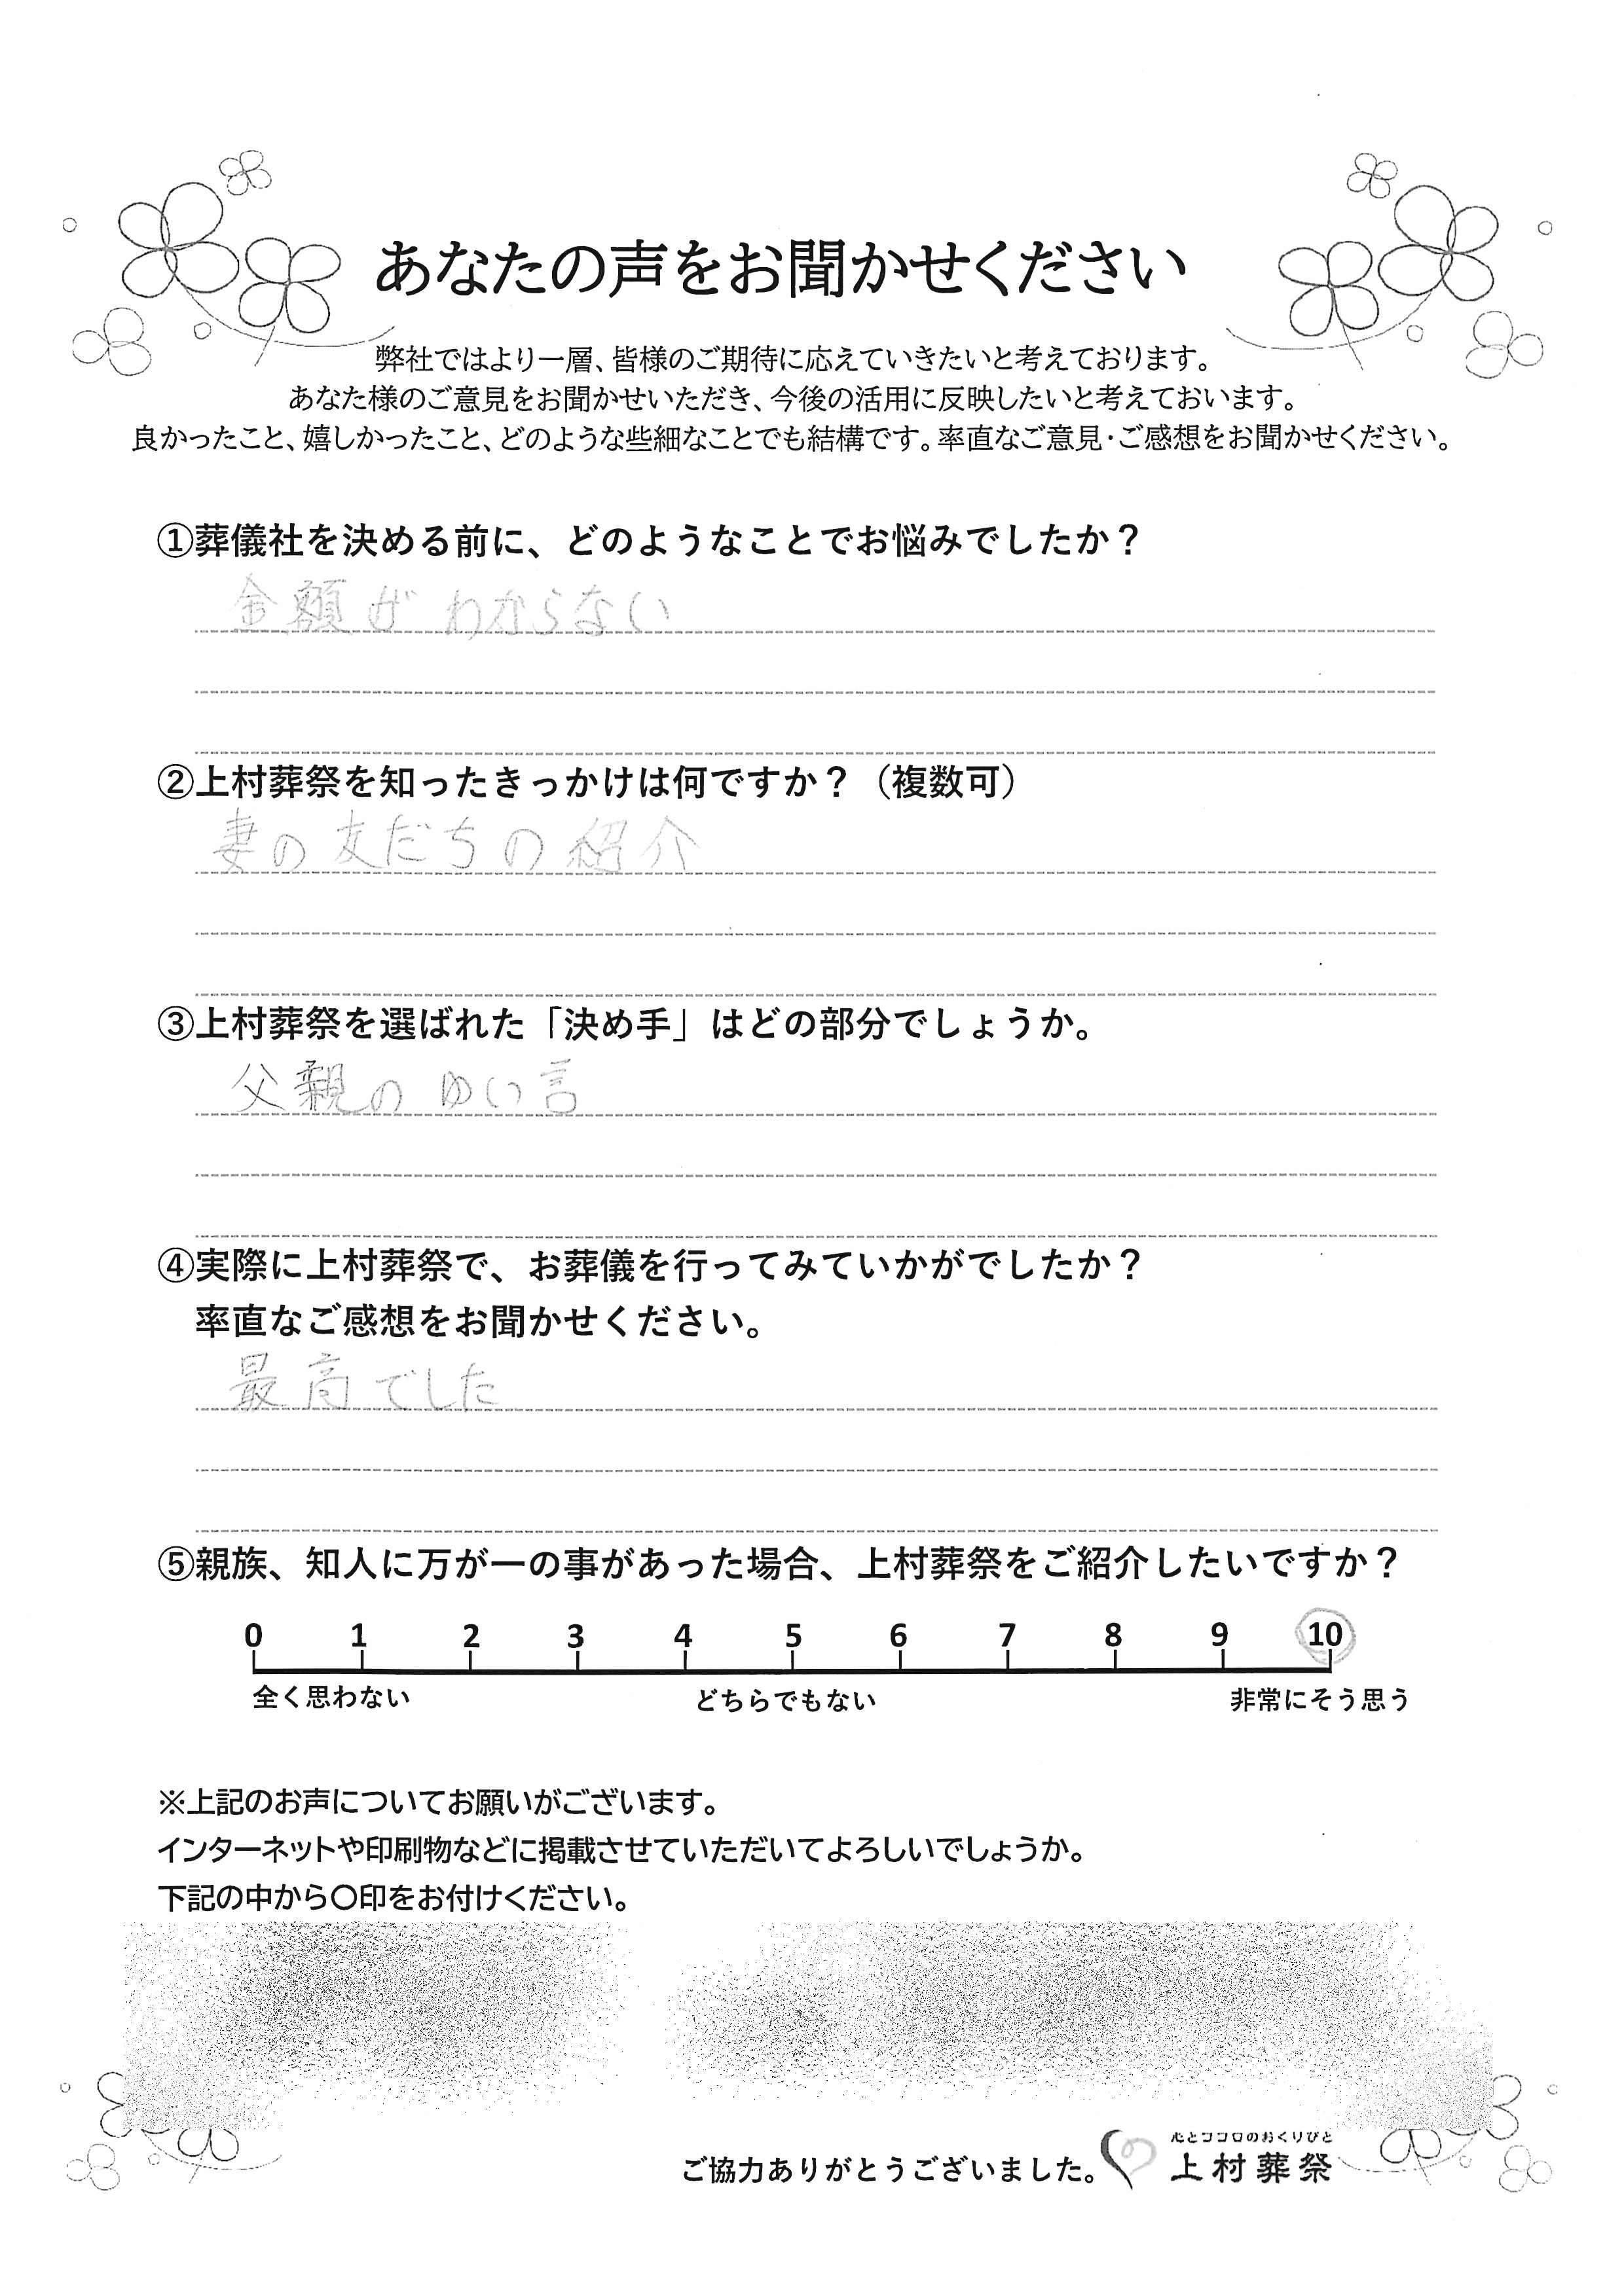 あなたの声をお聞かせください
弊社ではより一層、皆様のご期待に応えていきたいと考えております。
あなた様のご意見をお聞かせいただき、今後の活用に反映したいと考えておいます。
良かったこと、嬉しかったこと、どのような些細なことでも結構です。率直なご意見・ご感想をお聞かせください。
①葬儀社を決める前に、どのようなことでお悩みでしたか？
金額がわからない
②上村葬祭を知ったきっかけは何ですか？（複数可）
妻の友だちの紹介
③上村葬祭を選ばれた「決め手」はどの部分でしょうか。
父親のゆい言
④実際に上村葬祭で、お葬儀を行ってみていかがでしたか？
率直なご感想をお聞かせください。
最高でした
⑤親族、知人に万が一の事があった場合、上村葬祭をご紹介したいですか？
0 1 2 3 4 5 6 7 8 9 10
全く思わない どちらでもない 非常にそう思う
※上記のお声についてお願いがございます。
インターネットや印刷物などに掲載させていただいてよろしいでしょうか。
下記の中から〇印をお付けください。
心とココロのおくりびと
ご協力ありがとうございました。 上村葬祭